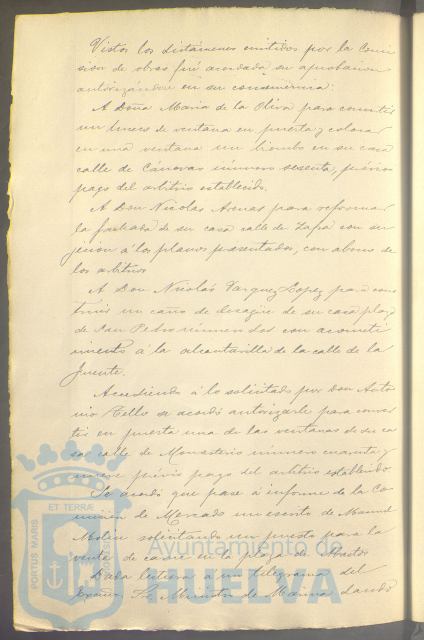 Vistos los dictámenes emitidos por la Comi
sion de obras fué acordada su aprobacion
autorizandose en su consecuencia:
A Doña Maria de la Oliva para convertir
un hueco de ventana en puerta y colocar
en una ventana un biombo en su casa
calle de Cánovas número sesenta, prévio
pago del arbitrio establecido.
A Don Nicolas Arenas para reformar
la fachada de su casa calle de Zafra con su
jecion á los planos presentados, con abono de
los arbitrios
A Don Nicolás Vazquez Lopez para cons
truir un caño de desagüe de su casa plaza
de San Pedro número dos con acometi
miento á la alcantarilla de la calle de la
Fuente.
Accediendo á lo solicitado por Don Anto
nio Tello se acordó autorizarle para conver
tir en puerta una de las ventanas de su ca
sa calle de Monasterio número cuarenta y
nueve prévio pago del arbitrio establecido
Se acordó que pase á informe de la Co
mision de Mercado un escrito de Manuel
Molin solicitando un puesto para la
venta de en la plaza de Abastos
Dada lectura a un telegrama del
Excmo. Sr. Ministro de Marina dando
Ayuntamiento de
HUELVA
PORTUS MARIS
ET TERRÆ